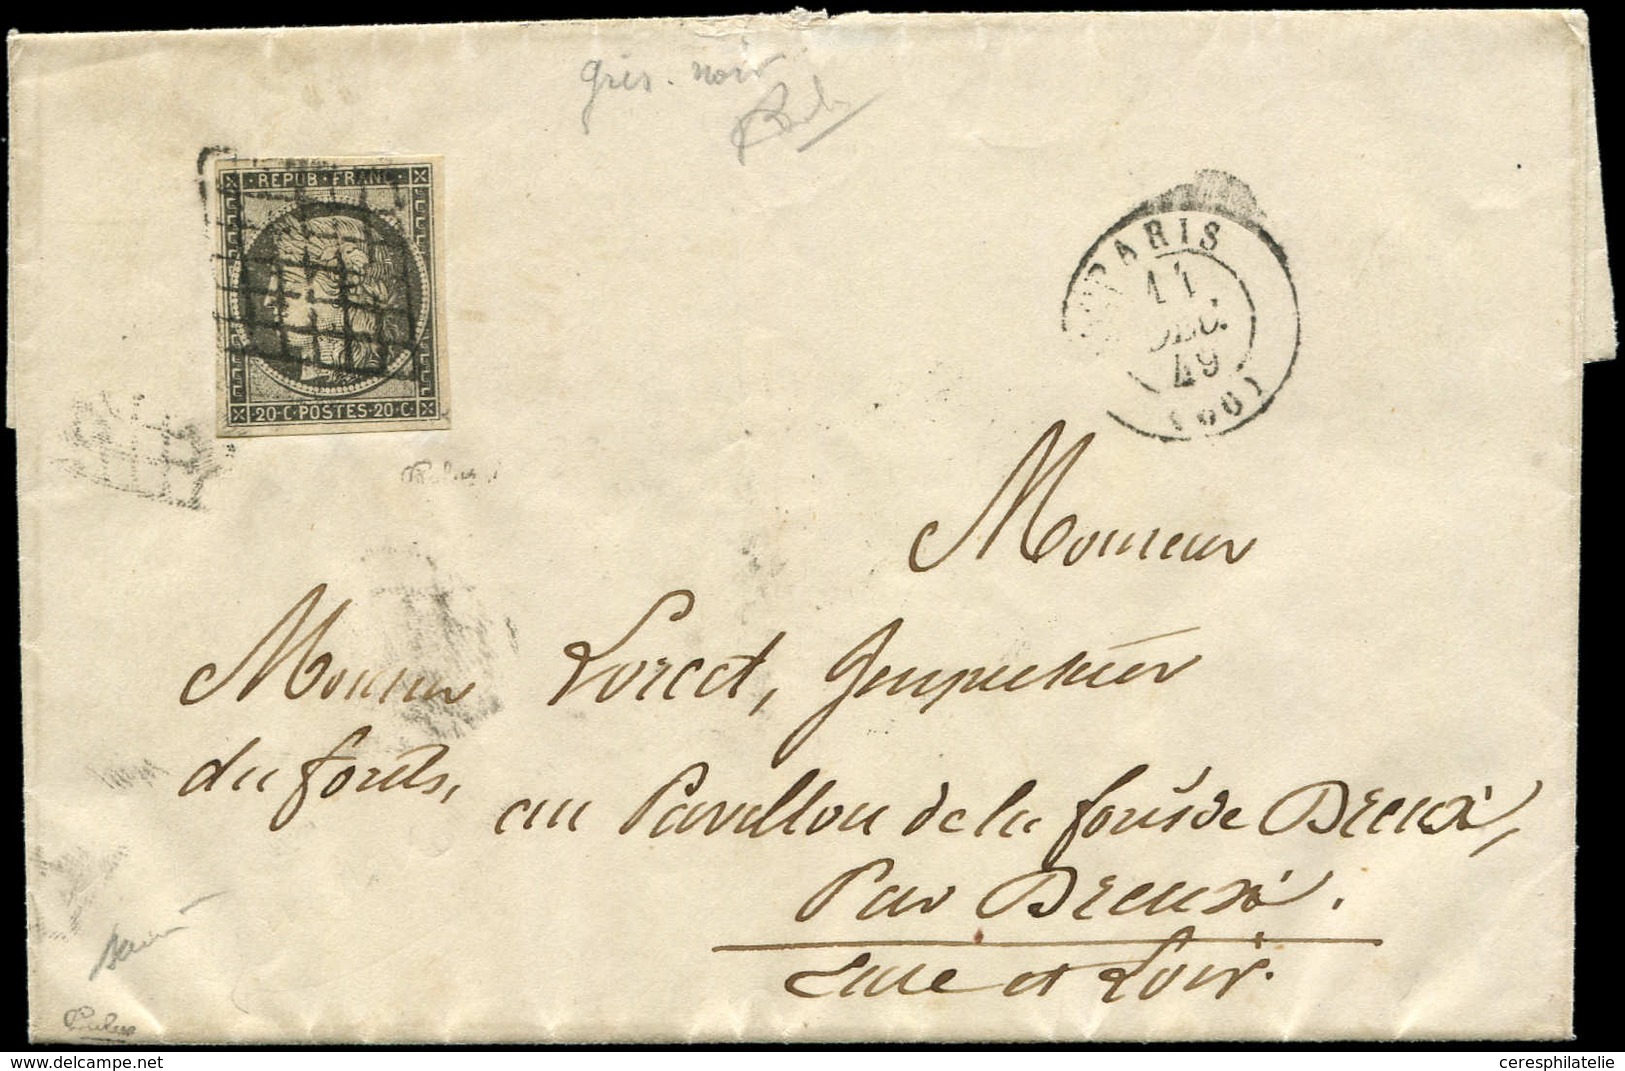 gris. noir
REPUB. FRANC.
20 · C · POSTES · 20 · C ·
PARIS
11
DEC.
49
(60)
Monsieur
Monsieur Lorect, Inspecteur
du forêts,
au Pavillon de la forêt de Dreux,
Par Dreux.
Eure et Loir.
ceresphilatelie